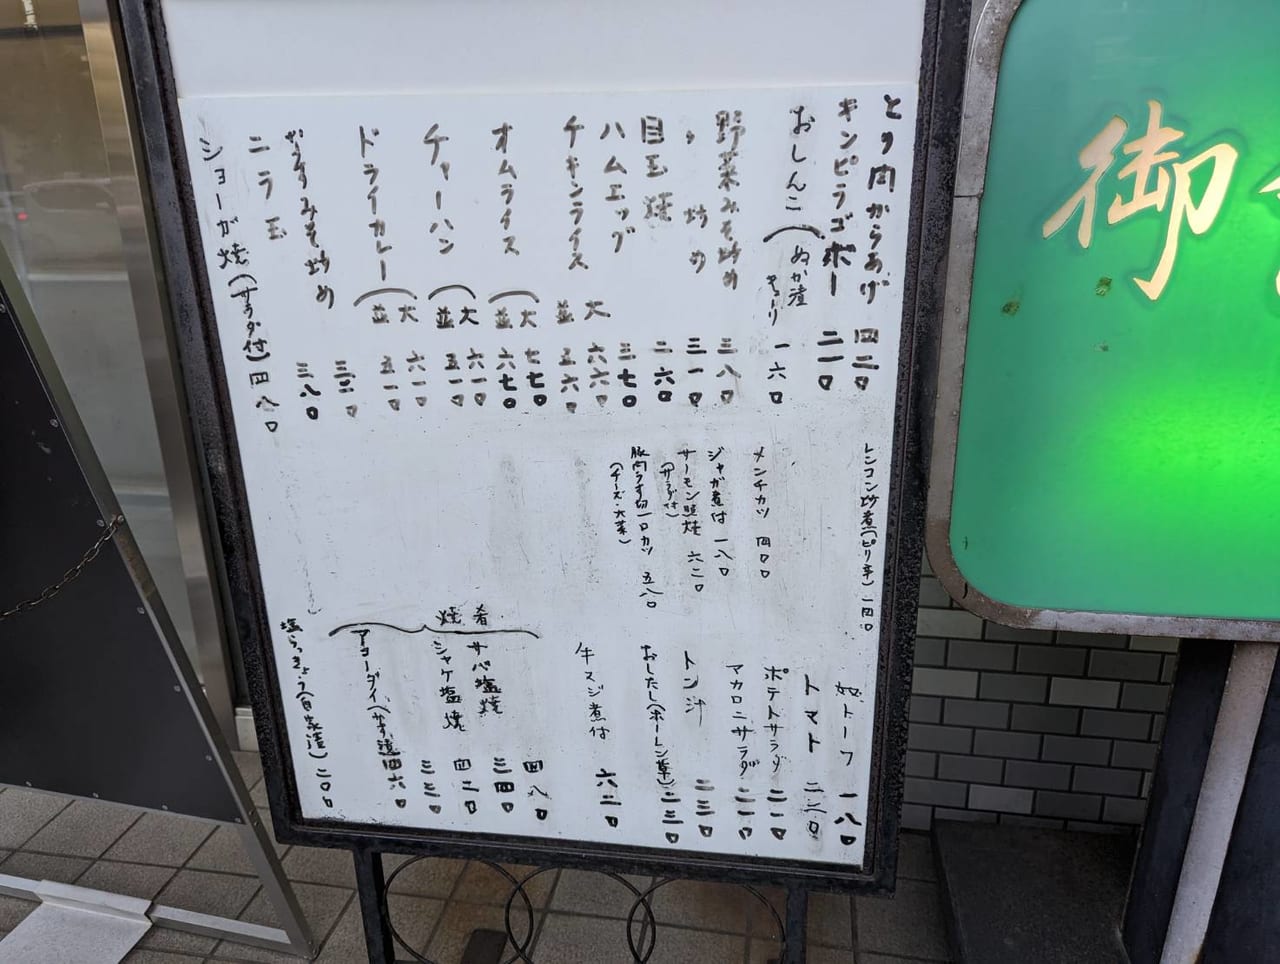 とり肉からあげ 四二〇
キンピラゴボー 二一〇
おしんこ(ぬか漬 キューリ 一六〇
野菜みそ炒め 三八〇
〃 炒め 三一〇
目玉焼 二六〇
ハムエッグ 三七〇
チキンライス 大 六六〇
並 五六〇
オムライス(大 七七〇
並 六七〇
チャーハン(大 六一〇
並 五一〇
ドライカレー(大 六一〇
並 五一〇
なすみそ炒め
ニラ玉 三八〇
ショーが焼(サラダ付)四八〇
レンコン炒煮(ピリ辛)一四〇
メンチカツ 四〇〇
ジャガ煮付 一八〇
サーモン照焼 六二〇
(サラダ付)
豚肉うす切一口カツ 五八〇
(チーズ・大葉)
奴トーフ 一八〇
トマト 二二〇
ポテトサラダ 二一〇
マカロニサラダ 二一〇
トン汁 二三〇
おしたし(ホーレン草)二三〇
牛スジ煮付 六二〇
肴 焼
四八〇
サバ塩焼 三四〇
シャケ塩焼 四二〇
三三〇
アコーダイ(かす漬 四六〇
塩らっきょう(自家漬)二〇〇
御